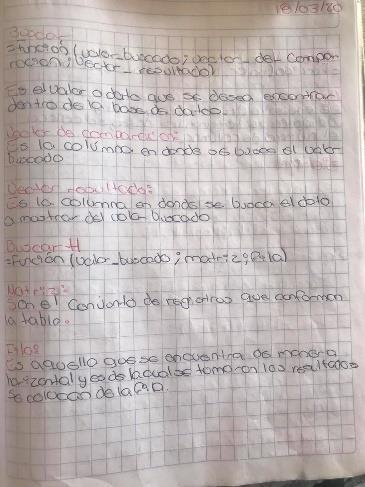 18/03/20
Buscar
=Función (valor_buscado; vector_de_compa
ración; vector_resultado)
Es el valor o dato que se desea encontrar
dentro de la base de datos.
Vector de comparación:
Es la columna en donde se busca el valor
buscado
Vector resultado:
Es la columna en donde se busca el dato
a mostrar del valor buscado
Buscar H
=Función (valor_buscado; matriz; fila)
Matriz:
Son el conjunto de registros que conforman
la tabla.
Filas
Es aquello que se encuentra de manera
horizontal y es de la cual se toman los resultados
se colocan de la